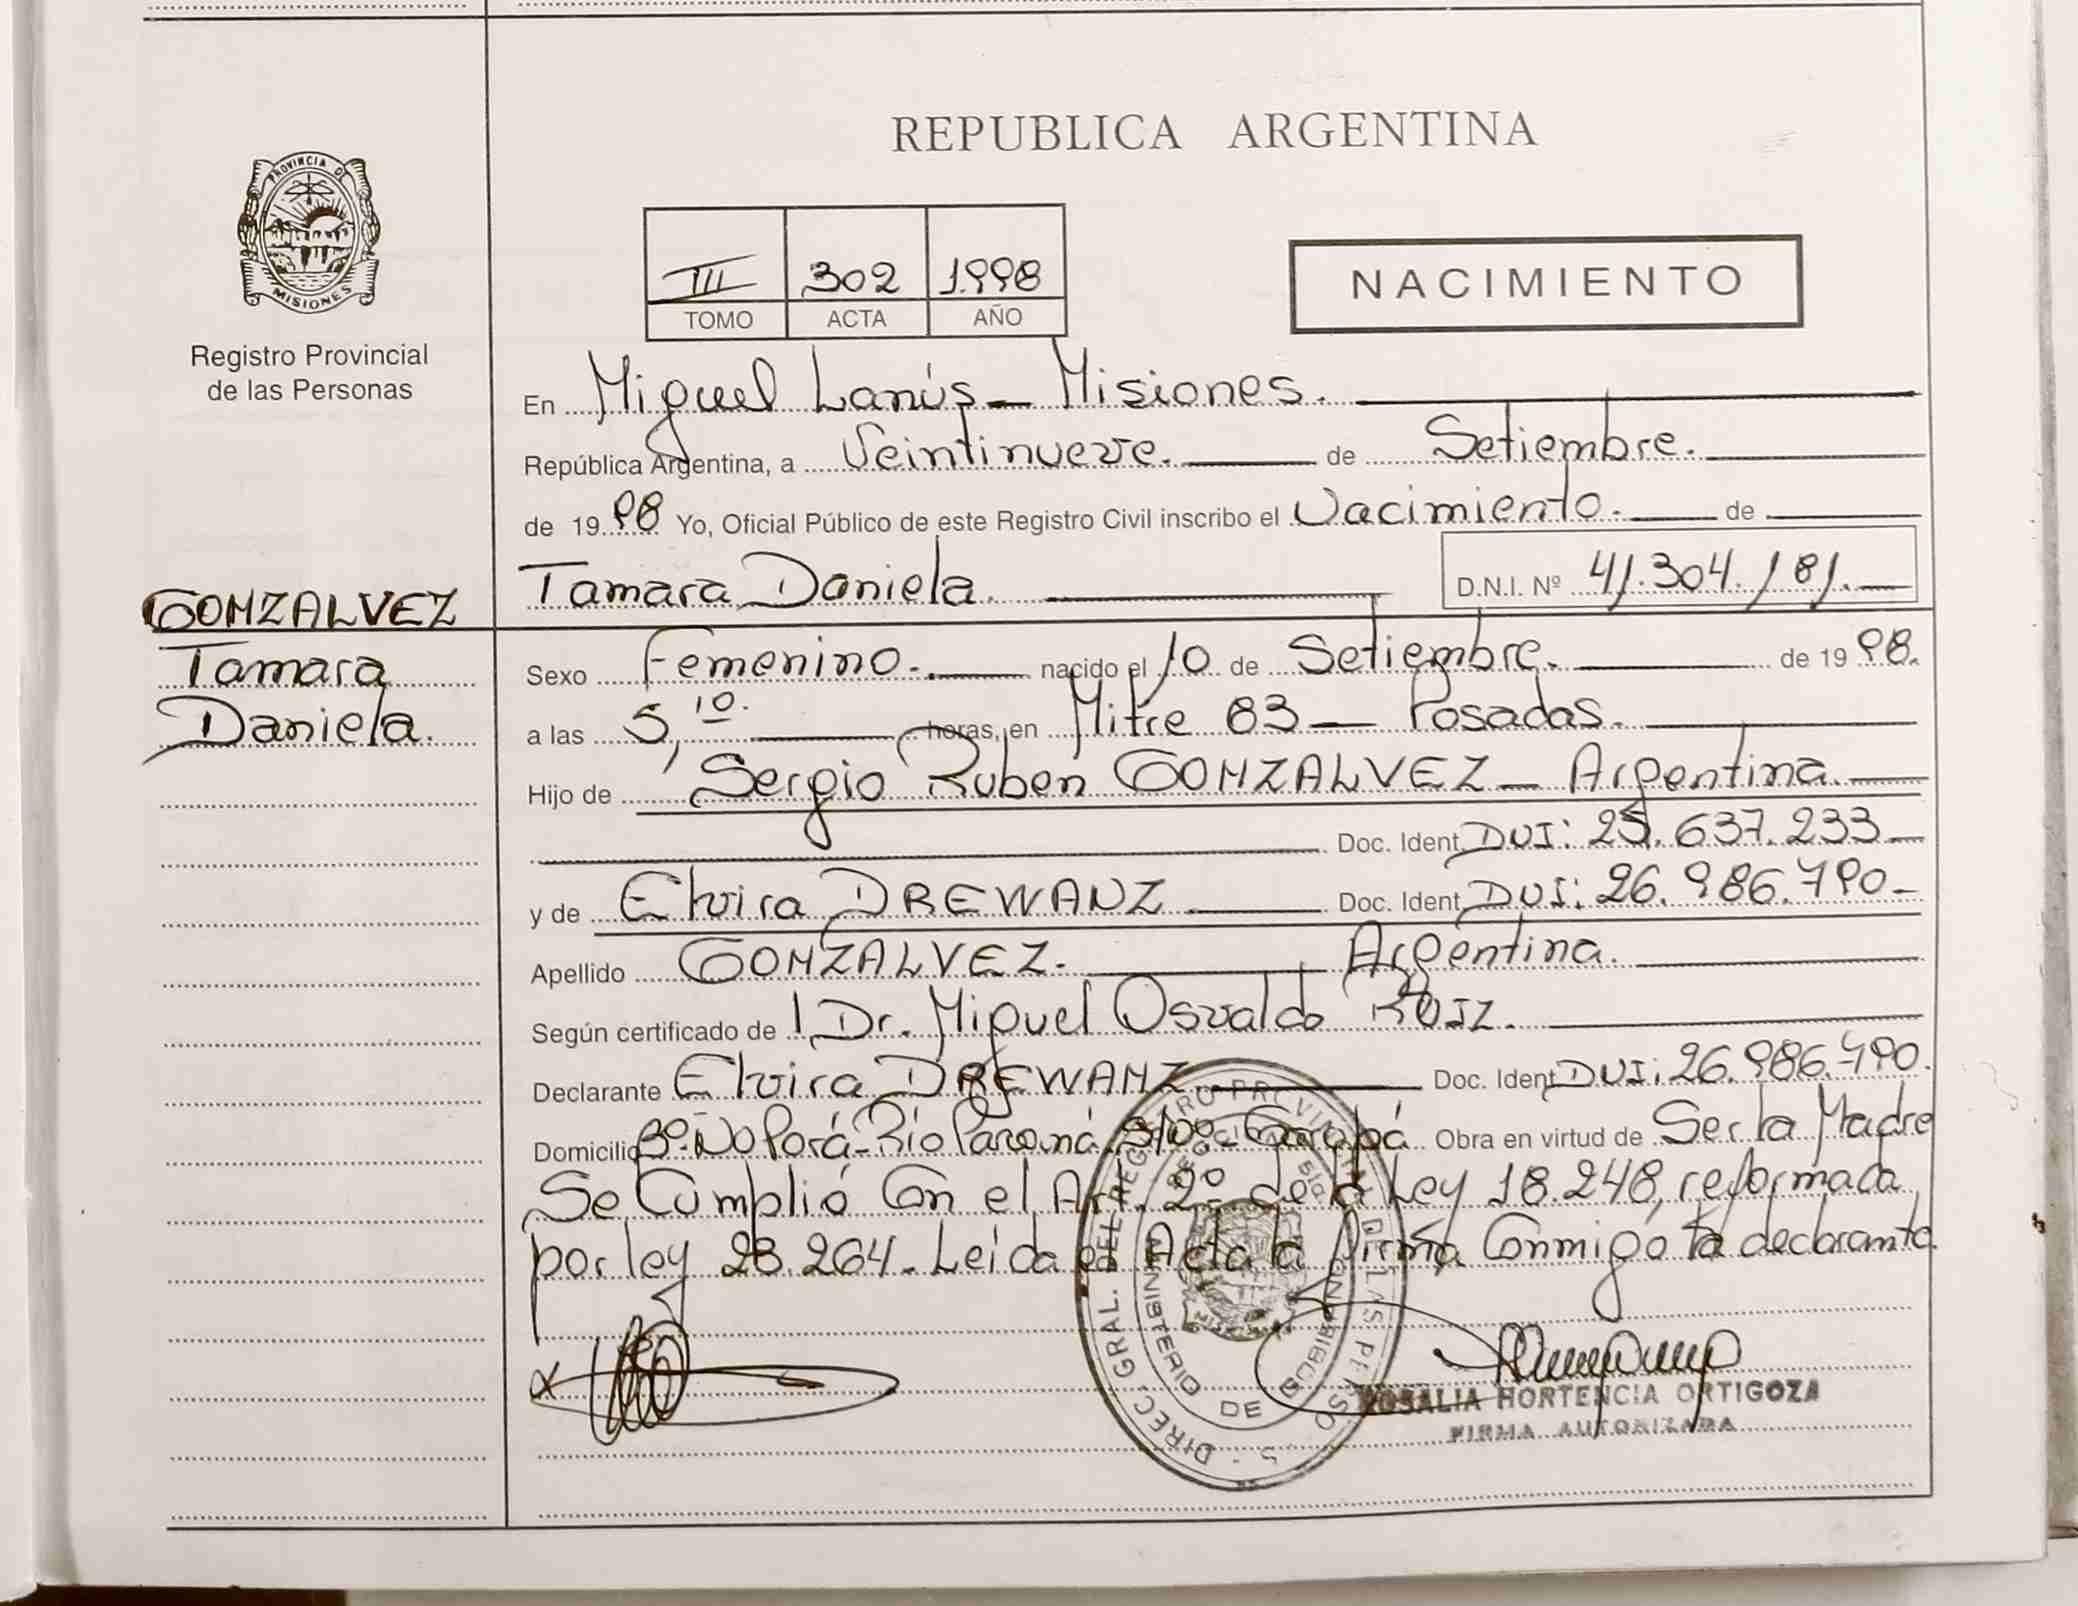 REPUBLICA ARGENTINA
PROVINCIA DE
MISIONES
Registro Provincial
de las Personas
III 302 1998
TOMO ACTA AÑO
NACIMIENTO
En Miguel Lanús - Misiones.
República Argentina, a Veintinueve. de Setiembre.
de 1998 Yo, Oficial Público de este Registro Civil inscribo el Nacimiento. de
Tamara Daniela. D.N.I. Nº 41.304.181.
GONZALVEZ
Tamara
Daniela.
Sexo Femenino. nacido el 10 de Setiembre. de 1998.
a las 5,10. horas, en Mitre 83 - Posadas.
Hijo de Sergio Ruben GONZALVEZ - Argentina.
Doc. Ident. DNI: 25.637.233-
y de Elvira DREWANZ. Doc. Ident. DNI: 26.986.790-
Apellido GONZALVEZ. Argentina.
Según certificado de Dr. Miguel Osvaldo RUIZ.
Declarante Elvira DREWANZ. Doc. Ident. DNI: 26.986.790.
Domicilio Bº Ño Porá - Río Paraná Garupá Obra en virtud de Ser la Madre
Se Cumplió Con el Art. 2º de la Ley 18.248, reformada
por ley 23.264. Leída el Acta la firma Conmigo la declarante.
DIREC. GRAL. DEL REGISTRO PROVINCIAL DE LAS PERSONAS
MINISTERIO DE GOBIERNO
ROSALIA HORTENCIA ORTIGOZA
FIRMA AUTORIZADA